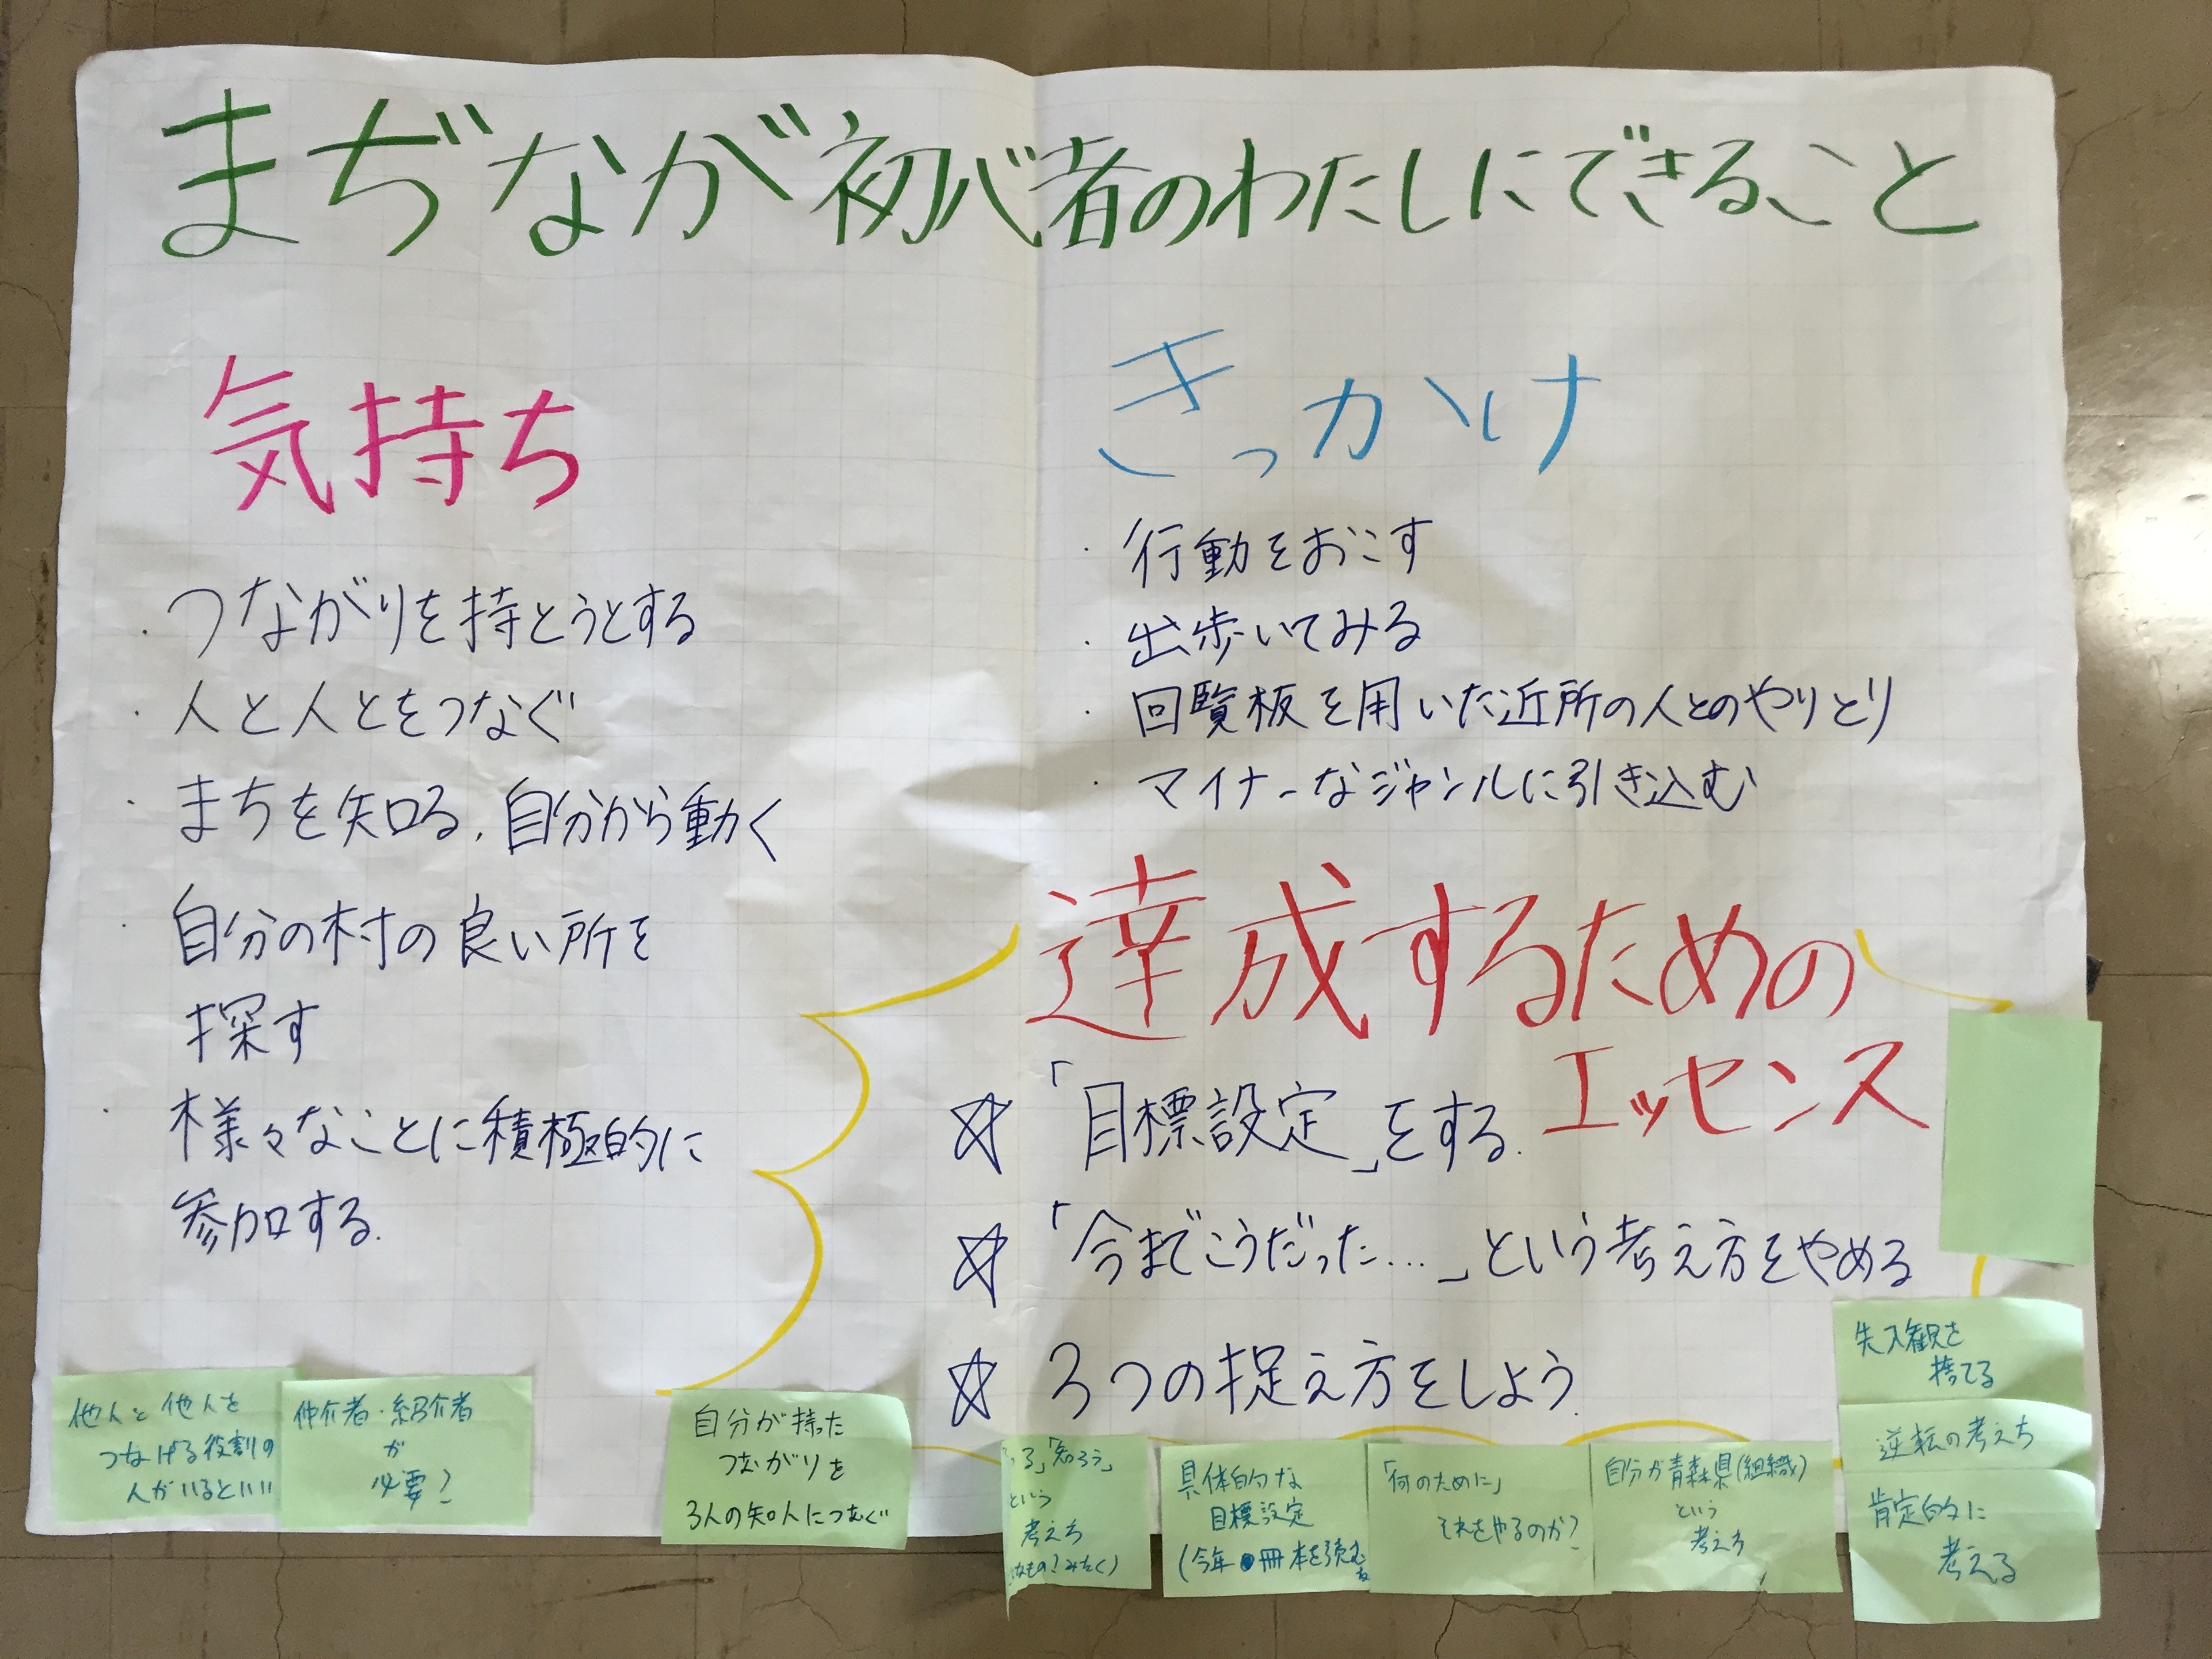 まぢなが初心者のわたしにできること
気持ち
・つながりを持とうとする
・人と人とをつなぐ
・まちを知る、自分から動く
・自分の村の良い所を
探す
・様々なことに積極的に
参加する.
きっかけ
・行動をおこす
・出歩いてみる
・回覧板を用いた近所の人とのやりとり
・マイナーなジャンルに引き込む
達成するための
エッセンス
☆「目標設定」をする.
☆「今までこうだった…」という考え方をやめる
☆3つの捉え方をしよう.
他人と他人を
つなげる役割の
人がいるといい
仲介者・紹介者
が
必要?
自分が持った
つながりを
3人の知人につなぐ
る」「知ろう」
という
考え方
なもの?みたく)
具体的な
目標設定
(今年●冊本を読む
「何のために」
それをやるのか?
自分が青森県(組織)
という
考え方
先入観を
捨てる
逆転の考え方
肯定的に
考える